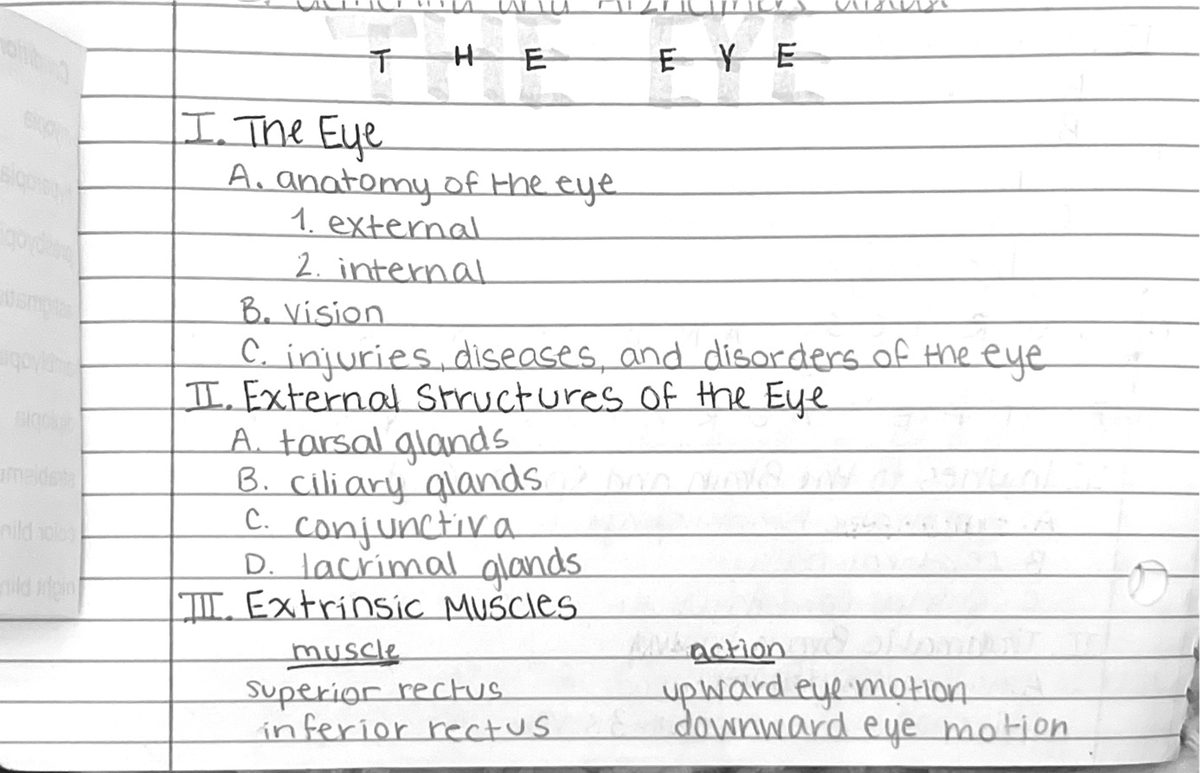 and Alzheimer's disease
THE EYE
I. The Eye
A. anatomy of the eye
1. external
2. internal
B. vision
C. injuries, diseases, and disorders of the eye
II. External Structures of the Eye
A. tarsal glands
B. ciliary glands
C. conjunctiva
D. lacrimal glands
III. Extrinsic Muscles
muscle action
superior rectus upward eye motion
inferior rectus downward eye motion